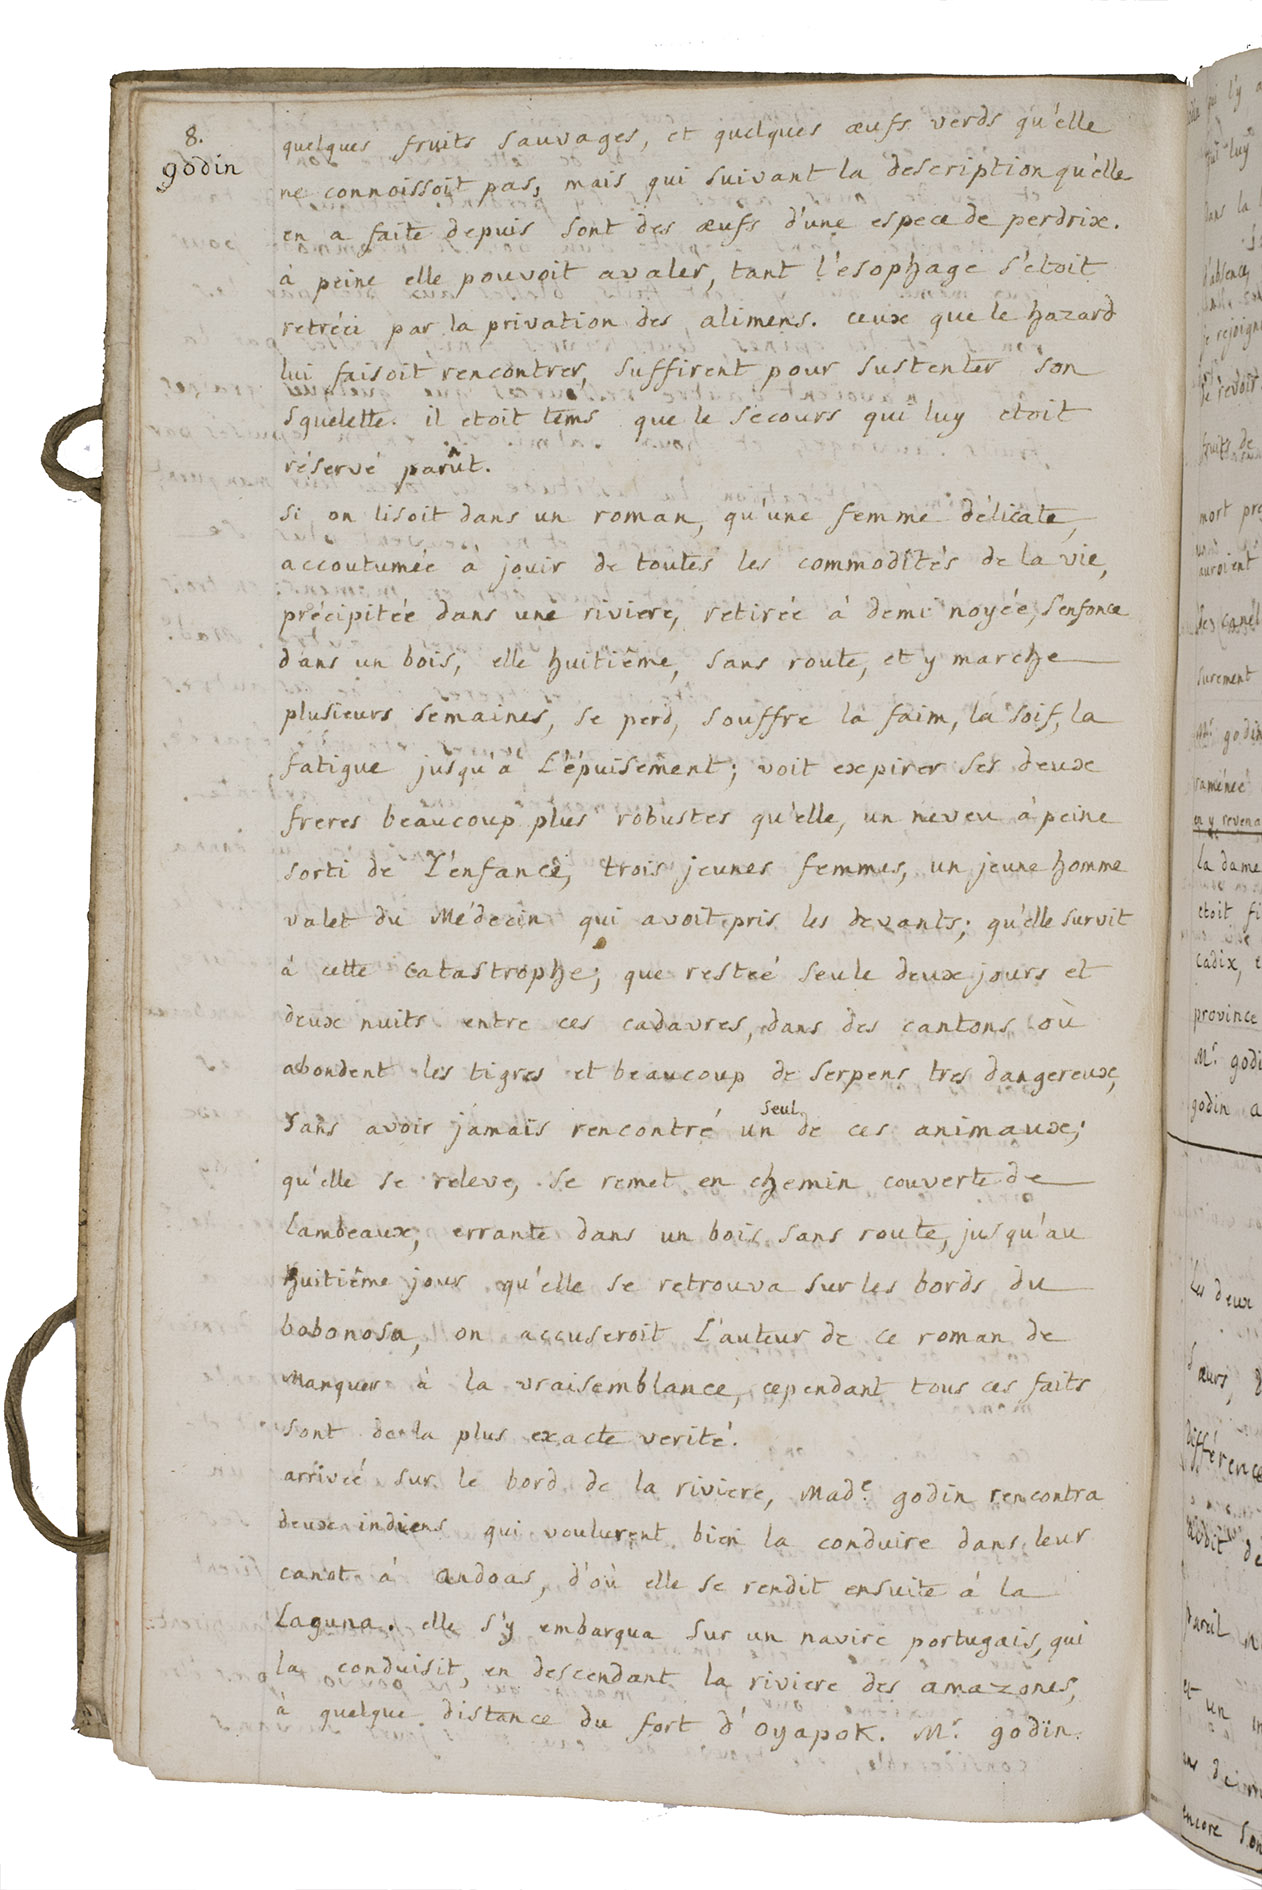 8.
godin
quelques fruits sauvages, et quelques œufs verds qu'elle
ne connoissoit pas, mais qui suivant la description qu'elle
en a faite depuis sont des œufs d'une espece de perdrix.
à peine elle pouvoit avaler, tant l'esophage s'etoit
retréci par la privation des alimens. ceux que le hazard
lui faisoit rencontrer, suffirent pour sustenter son
squelette. il etoit tems que le secours qui luy etoit
réservé parût.
si on lisoit dans un roman, qu'une femme délicate,
accoutumée à jouir de toutes les commodités de la vie,
précipitée dans une riviere, retirée à demi noyée, s'enfonce
dans un bois, elle huitiême, sans route, et y marche
plusieurs semaines, se perd, souffre la faim, la soif, la
fatigue jusqu'à L'épuisement; voit expirer ses deux
freres beaucoup plus robustes qu'elle, un neveu à peine
sorti de L'enfance, trois jeunes femmes, un jeune homme
valet du Médecin qui avoit pris les devants; qu'elle survit
à cette catastrophe; que restée seule deux jours et
deux nuits entre ces cadavres, dans des cantons où
abondent les tigres et beaucoup de serpens tres dangereux,
sans avoir jamais rencontré un seul de ces animaux;
qu'elle se releve, se remet en chemin couverte de
lambeaux, errante dans un bois sans route, jusqu'au
huitiême jour qu'elle se retrouva sur les bords du
bobonosa, on accuseroit L'auteur de ce roman de
manquer à la vraisemblance, cependant tous ces faits
sont de la plus exacte verité.
arrivée sur le bord de la riviere, Made. godin rencontra
deux indiens qui voulurent bien la conduire dans leur
canot à andoas, d'où elle se rendit ensuite à la
Laguna. elle s'y embarqua sur un navire portugais, qui
la conduisit, en descendant la riviere des amazones,
à quelque distance du fort d'oyapok. Mr. godin
la dame
Cadix,
province
Mr godi
godin a
Les deux
différence
encore